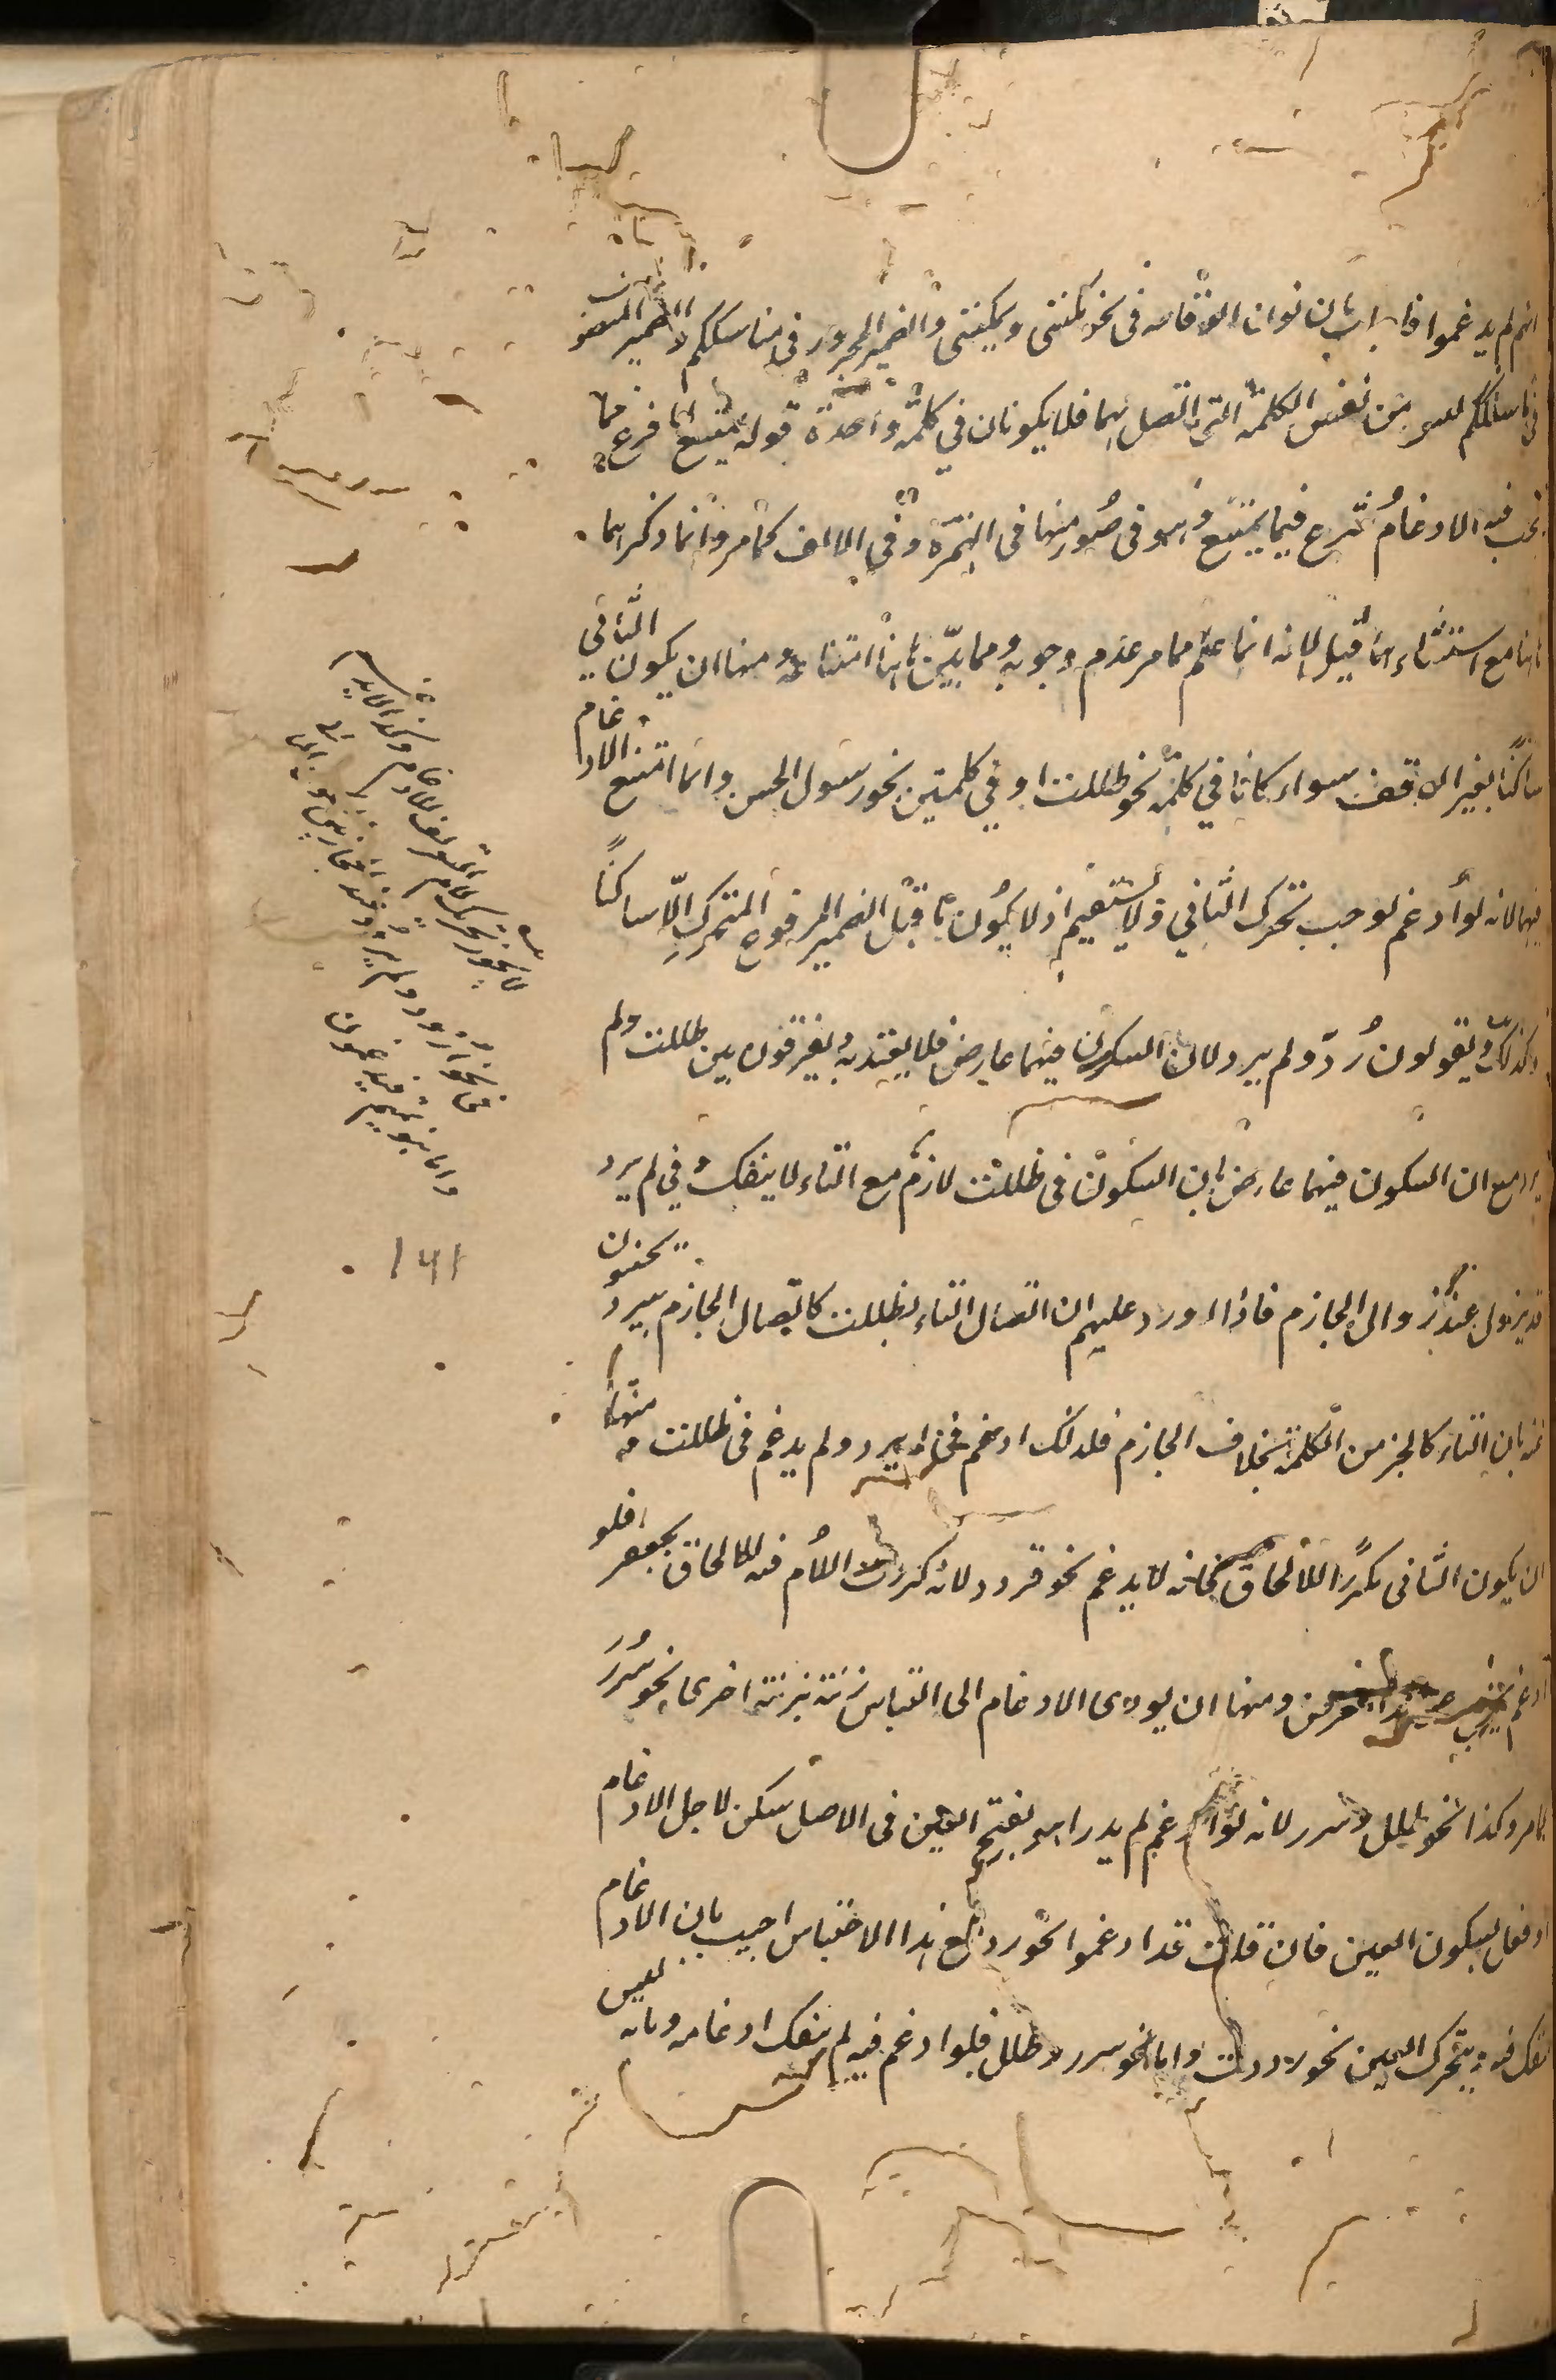 انهم لم يدغموا فاجاب بان نون الوقاية في نحو مكنني ويمكنني والضمير المجرور في مناسككم والضمير المنصوب
في ما سلككم ليس من نفس الكلمة التي اتصل بهما فلا يكونان في كلمة واحدة قوله ويمتنع لما فرغ مما
يجب فيه الادغام شرع فيما يمتنع وهو في صور منها في الهمزة وفي الالف كما مر وانما ذكرهما
هاهنا مع استثنائهما قبل لانه انما علم مما مر عدم وجوبه ومما بين هاهنا امتناعه ومنها ان يكون الثاني
ساكنا لغير الوقف سواء كانا في كلمة نحو ظللت او في كلمتين نحو رسول الحسن وانما امتنع الادغام
فيهما لانه لو ادغم لوجب تحرك الثاني ولا يستقيم اذ لا يكون ما قبل الضمير المرفوع المتحرك الا ساكنا
وكذلك ويقولون رد ولم يرد لان السكون فيهما عارض فلا يعتد به ويفرقون بين ظللت ولم
يرد مع ان السكون فيهما عارض بان السكون في ظللت لازم مع التاء لا ينفك وفي لم يرد
قد يزول عند زوال الجازم فاذا اورد عليهم ان اتصال التاء بظللت كاتصال الجازم بيرد يجيبون
عنه بان التاء كالجزء من الكلمة بخلاف الجازم فلذلك ادغم في لم يرد ولم يدغم في ظللت ومنها
ان يكون الثاني مكررا للالحاق فانه لا يدغم نحو قردد لانه كررت اللام فيه للالحاق بجعفر فلو
ادغم ومنها ان يودى الادغام الى التباس زنة بزنة اخرى نحو سرر
كما مر وكذا نحو طلل وسرر لانه لو ادغم لم يدر اهو بفتح العين في الاصل سكن لاجل الادغام
او فعل بسكون العين فان قلت قد ادغموا نحو رد مع هذا الالتباس اجيب بان الادغام
ينفك فيه بتحرك العين نحو رددت واما نحو سرر وطلل فلو ادغم فيه لم ينفك ادغامه وبانه ليس
لا يجوز تحريك لام التعريف للادغام
في نحو اردد ولم يردد عند الحجازيين
واما بنو تميم فيدغمون
١٤١